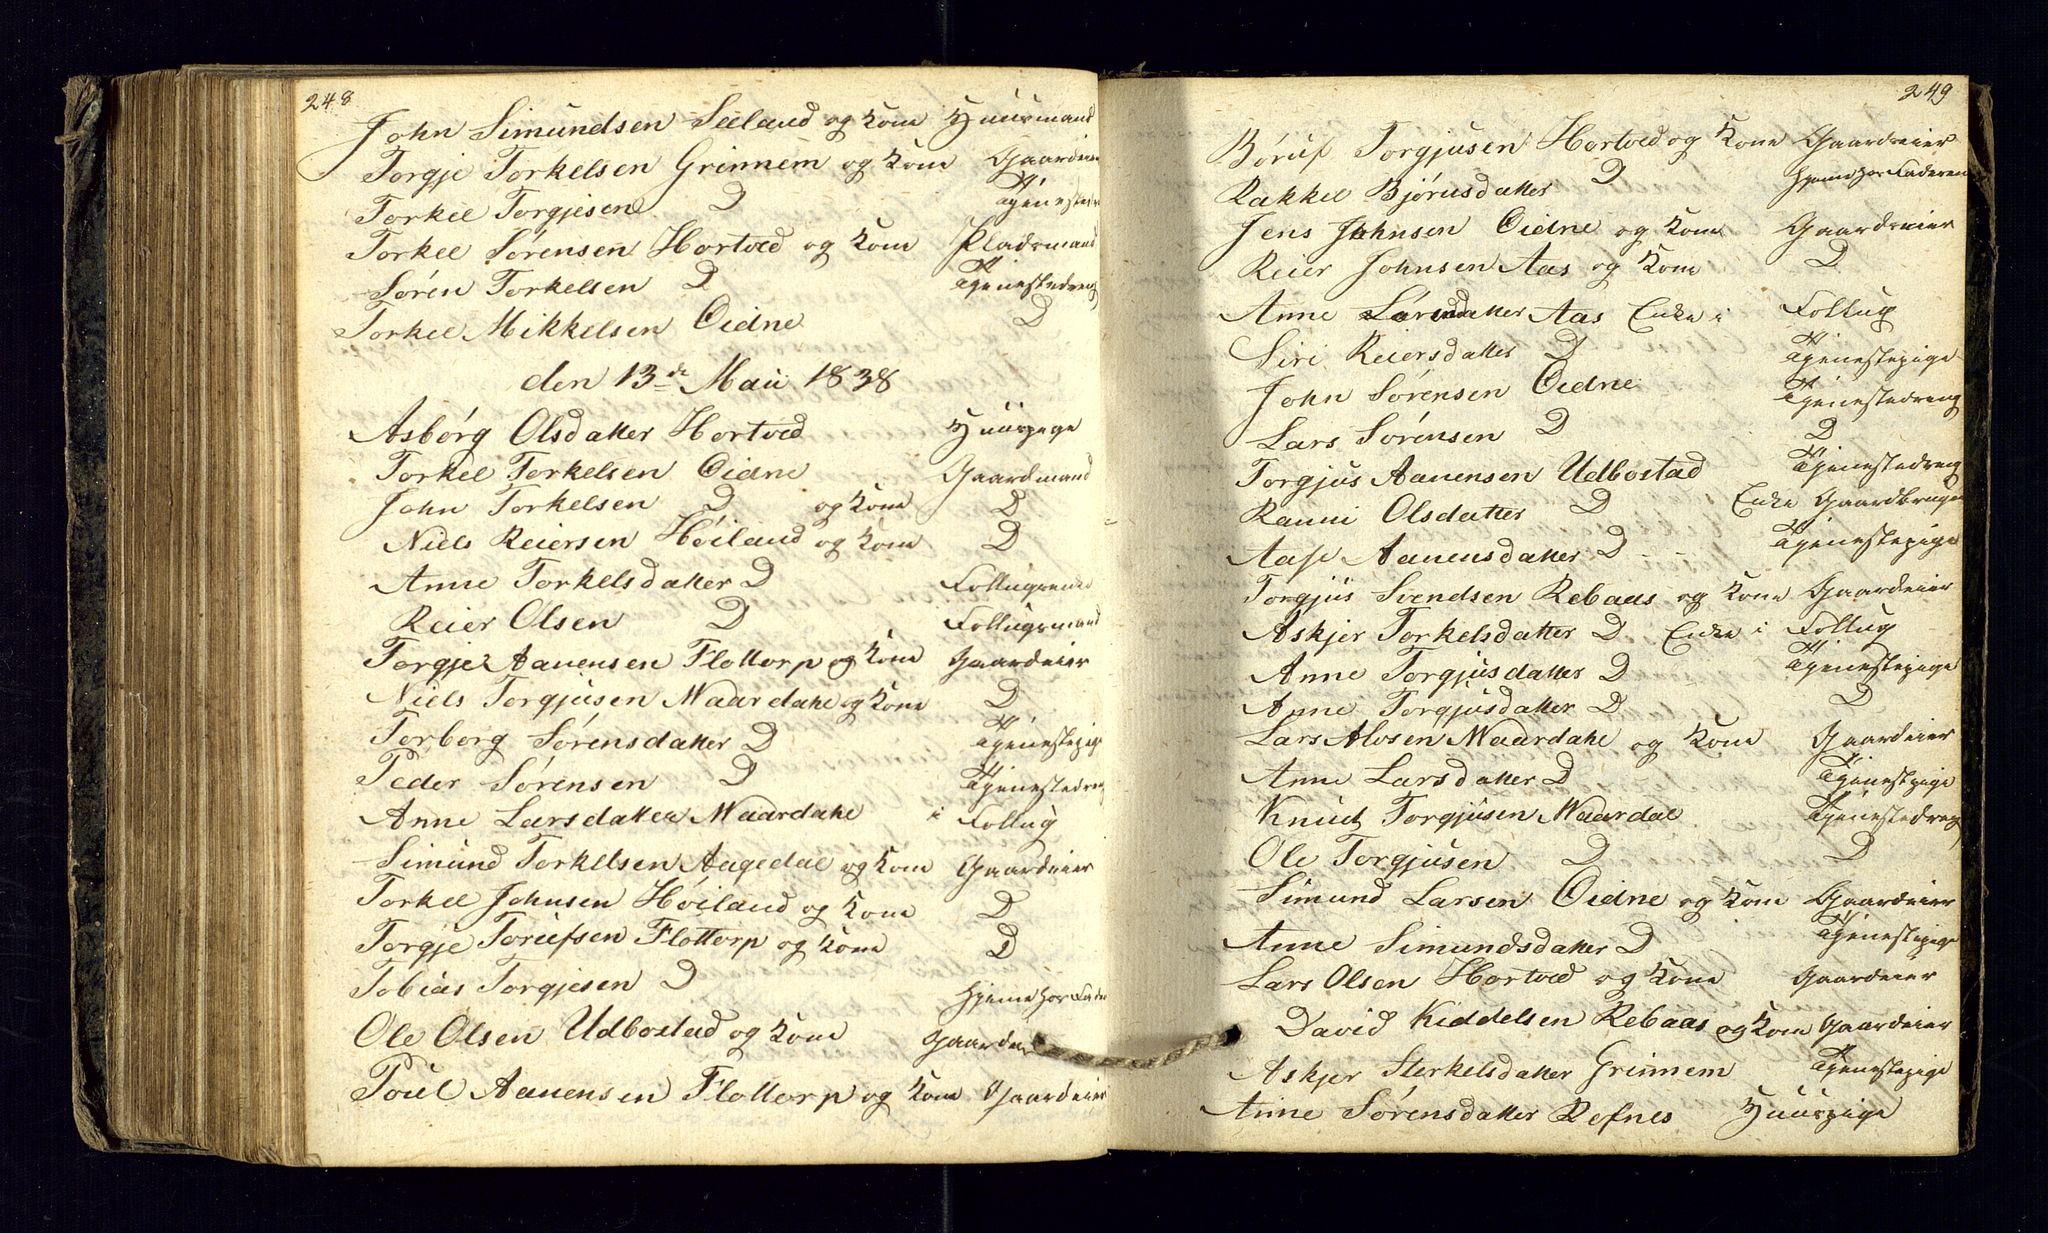 248
John Simundsen Seland og Kone Huusmand
Torgje Torkelsen Grinnem og Kone Gaardeier
Torkel Torgjesen D Tjenestedr
Torkel Sørensen Hortved og Kone Pladsmand
Søren Torkelsen D Tjenestedreng
Torkel Mikkelsen Eidne D
den 13de Maii 1838
Asbørg Olsdatter Hortved Huuspige
Torkel Torkelsen Eidne Gaardmand
John Torkelsen D og Kone D
Niels Reiersen Høiland og Kone D
Anne Torkelsdatter D
Reier Olsen D Follugsmand
Torgje Aanensen Flottorp og Kone Gaardeier
Niels Torgjusen Maardahl og Kone D
Torborg Sørensdatter D Tjenestepige
Peder Sørensen D Tjenestedreng
Anne Larsdatter Maardahl i Follug
Simund Torkelsen Aagedal og Kone Gaardeier
Torkel Johnsen Høiland og Kone D
Torgje Torufsen Flottorp og Kone D
Tobias Torgjesen D hjeme hos Fader
Ole Olsen Udbostad og Kone Gaardeier
Poul Aanensen Flottorp og Kone Gaardeier
249
Børuf Torgjusen Hortved og Kone Gaardeier
Rakkel Bjørusdatter D hjeme hos Faderen
Jens Johnsen Eidne og Kone Gaardeier
Reier Johnsen Aas og Kone D
Anne Aas Enke i Follug
Siri Reiersdatter D Tjenestepige
John Sørensen Eidne Tjenestedreng
Lars Sørensen D D
Torgjus Aanensen Udbostad Tjenestedreng
Ranni Olsdatter D Enke Gaardbruger
Aase Aanensdatter D - - Tjenestepige
Torgjus Svendsen Rebaas og Kone Gaardeier
Askjer Torkelsdatter D Enke i Follug
Anne Torgjusdatter D Tjenestepige
Anne Torgjusdatter D D
Lars Alosen Maardahl og Kone Gaardeier
Anne Larsdatter D Tjenestepige
Knud Torgjusen Maardal Tjenestedreng
Ole Torgjusen D D
Simund Larsen Eidne og Kone Gaardeier
Anne Simundsdatter D Tjenestepige
Lars Olsen Hortved og Kone Gaardeier
David Kiddelsen Rebaas og Kone Gaardeier
Askjer Sterkelsdatter Grinnem Tjenestepige
Anne Sørensdatter Refnes Huuspige